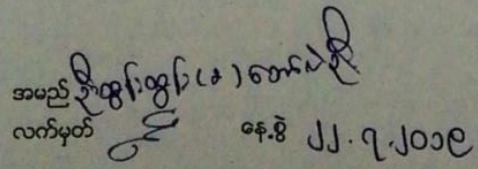 အမည် ဦးထွန်းထွန်း(ခ)
လက်မှတ် နေ့စွဲ ၂၂.၇.၂၀၁၉